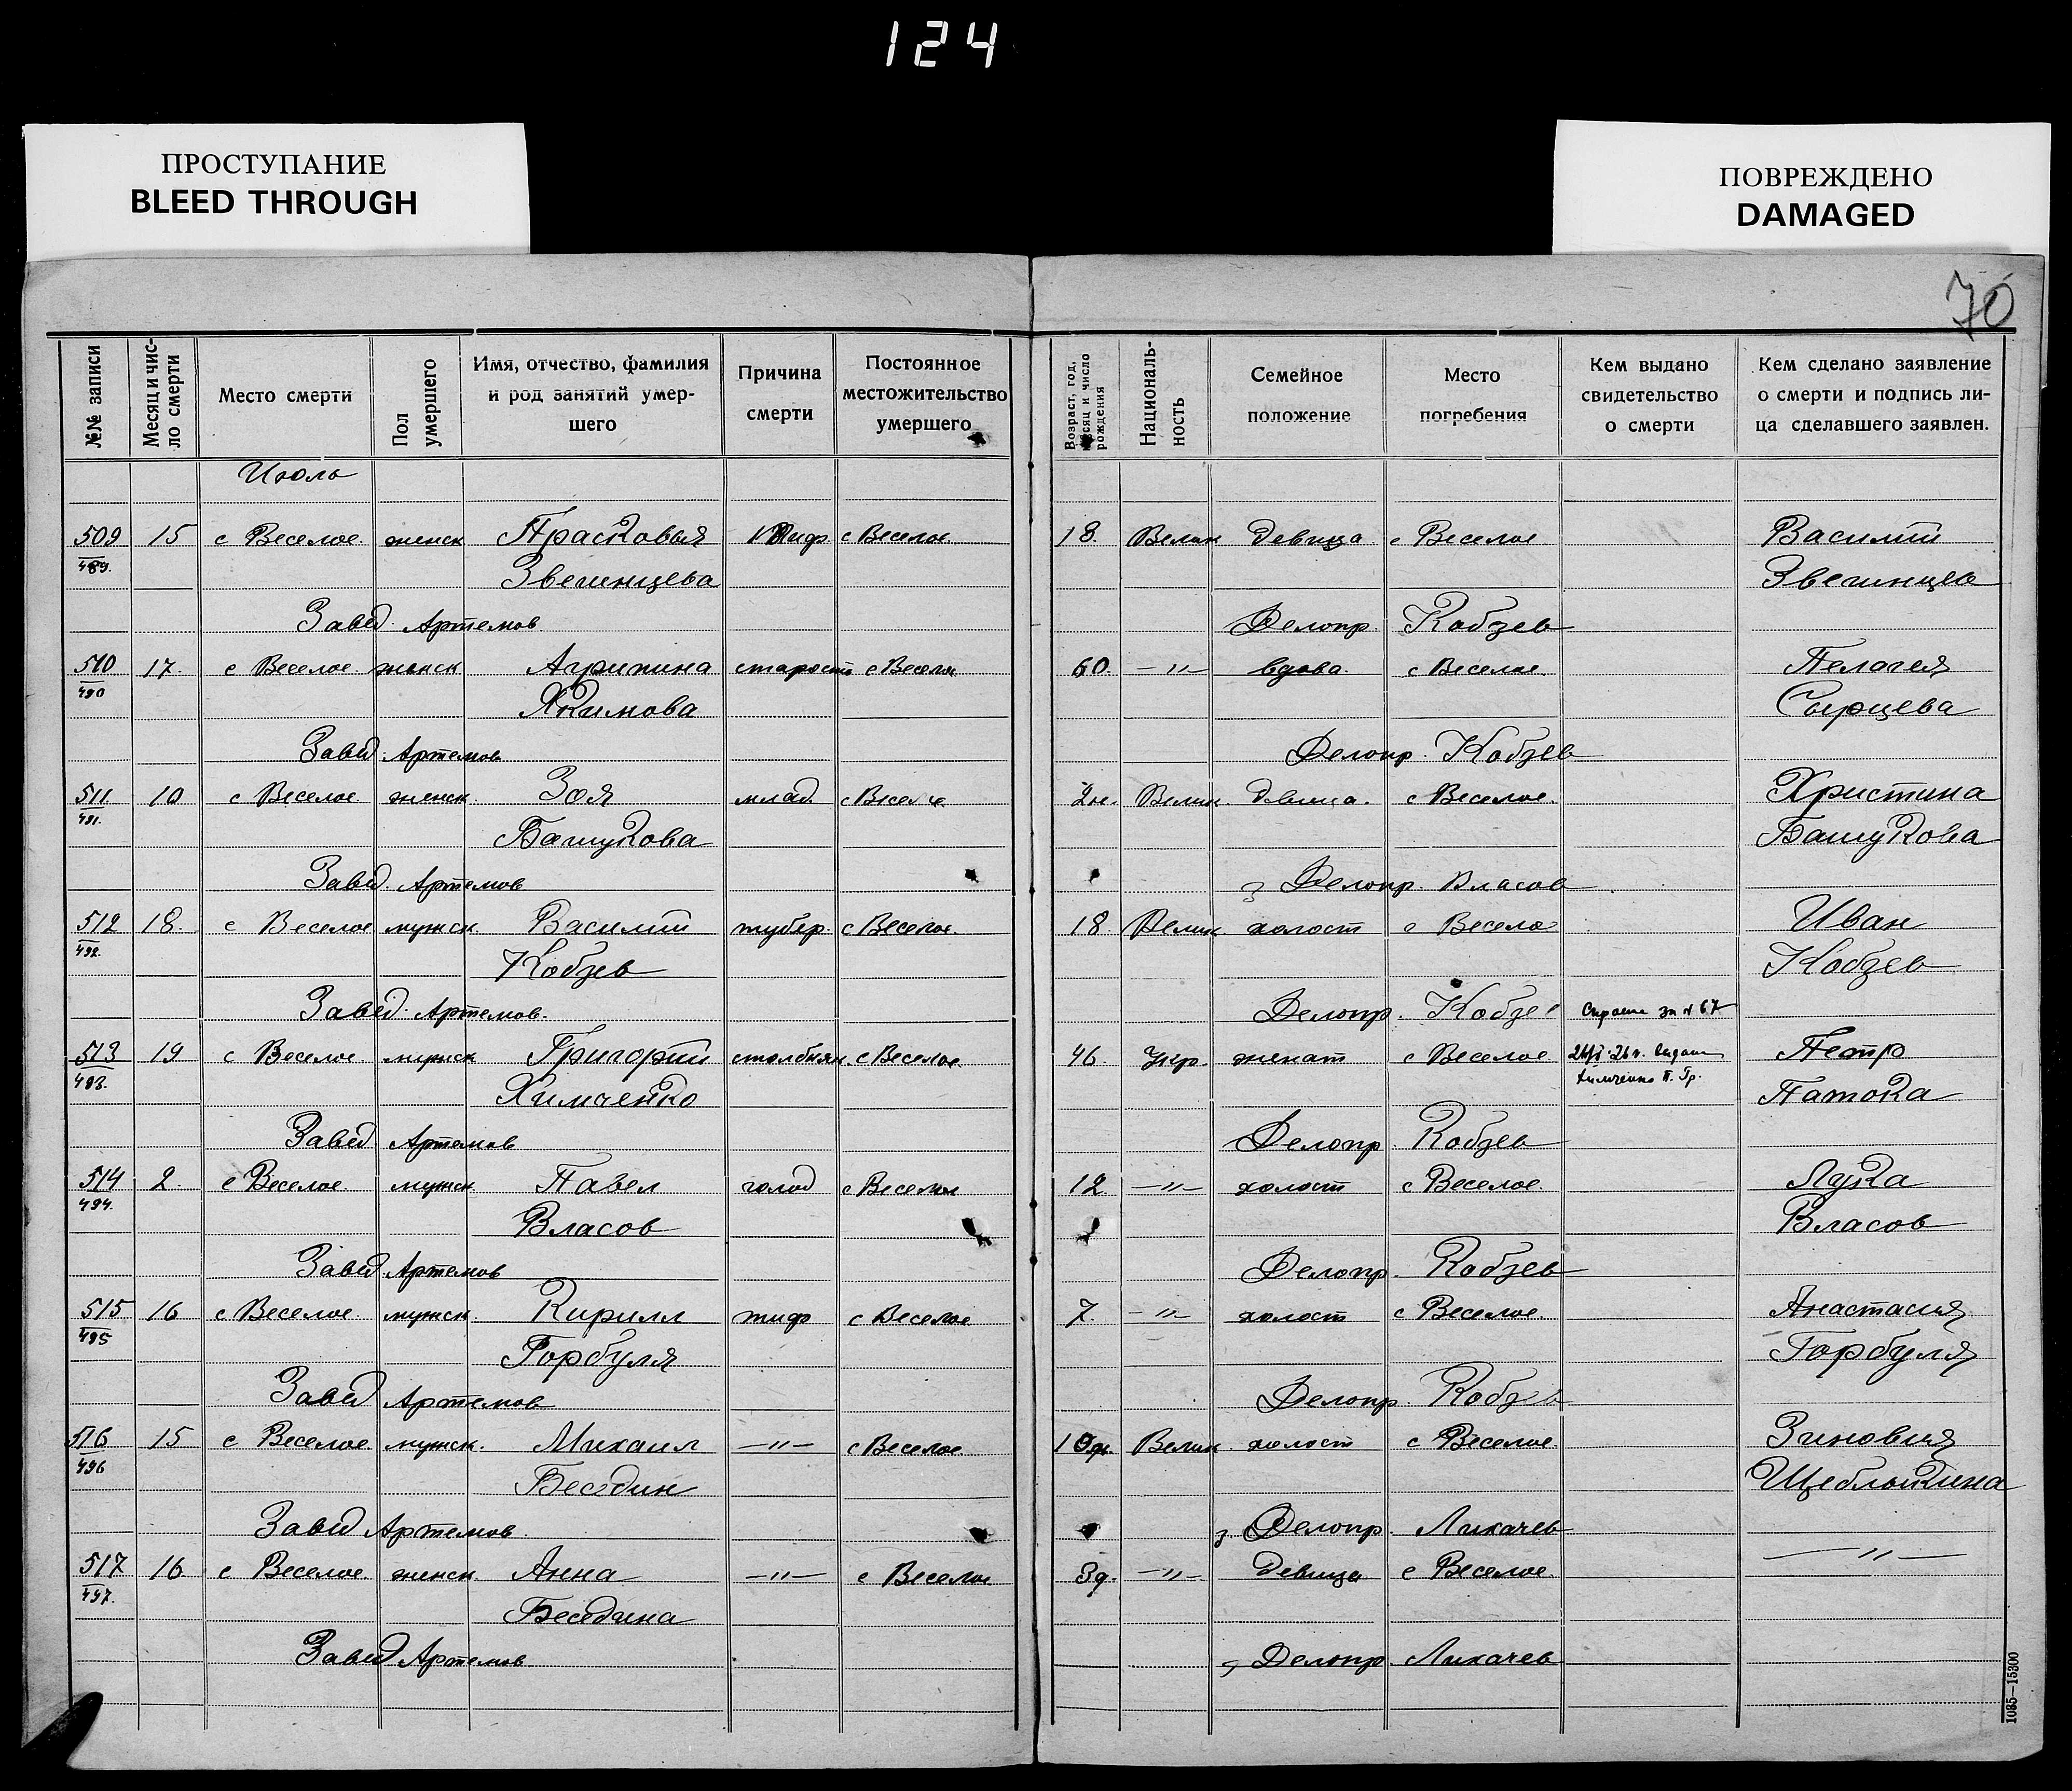 124
ПРОСТУПАНИЕ
BLEED THROUGH
ПОВРЕЖДЕНО
DAMAGED
70
№№ записи
Месяц и чис-
ло смерти
Место смерти
Пол
умершего
Имя, отчество, фамилия
и род занятий умер-
шего
Причина
смерти
Постоянное
местожительство
умершего
Возраст, год,
месяц и число
рождения
Националь-
ность
Семейное
положение
Место
погребения
Кем выдано
свидетельство
о смерти
Кем сделано заявление
о смерти и подпись ли-
ца сделавшего заявлен.
Июль
509 15 с Веселое женск Прасковья тиф с Веселое 18. Велик девица с Веселое Василий
489. Звегинцева Звегинцев
Завед. Артемов Делопр. Кобзев
510 17. с Веселое женск Агрипина старость с Веселое 60. —"— вдова. с Веселое. Пелагея
490 Якимова Сырцева
Завед. Артемов Делопр. Кобзев
511 10 с Веселое женск. Зоя млад. с Веселое 2н. Велик девица. с Веселое. Христина
491. Башукова Башукова
Завед. Артемов з Делопр. Власов
512 18. с Веселое мужск. Василий тубер. с Веселое. 18 Велик холост с Веселое Иван
492. Кобзев Кобзев
Завед. Артемов. Делопр. Кобзев за № 67
513 19 с Веселое мужск Григорий столбняк. с Веселое. 46. Укр. женат с Веселое Петр
493. Химченко Химченко П. Гр. Патока
Завед. Артемов Делопр. Кобзев
514 2. с Веселое. мужск. Павел голод с Веселое 12 —"— холост с Веселое. Лука
494. Власов Власов
Завед. Артемов Делопр. Кобзев
515 16 с Веселое. мужск. Кирилл тиф с Веселое 7. —"— холост с Веселое. Анастасия
495 Горбуля Горбуля
Завед Артемов Делопр. Кобзев
516 15 с Веселое мужск. Михаил —"— с Веселое. Велик холост с Веселое. Зиновия
496 Беседин
Завед Артемов. з Делопр. Лихачев
517 16 с Веселое. женск. Анна —"— с Веселое 3д. —"— девица с Веселое. —"—
497. Беседина
Завед Артемов з Делопр Лихачев
1035—15300